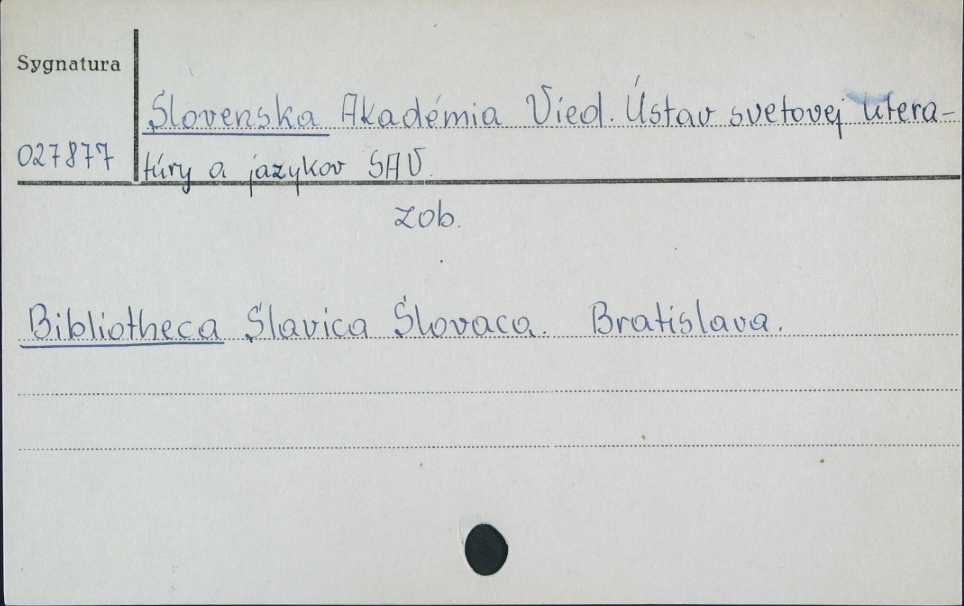 Sygnatura
Slovenska Akadémia Vied. Ústav svetovej litera-
027877
túry a jazykov SAV.
zob.
Bibliotheca Slavica Slovaca. Bratislava.